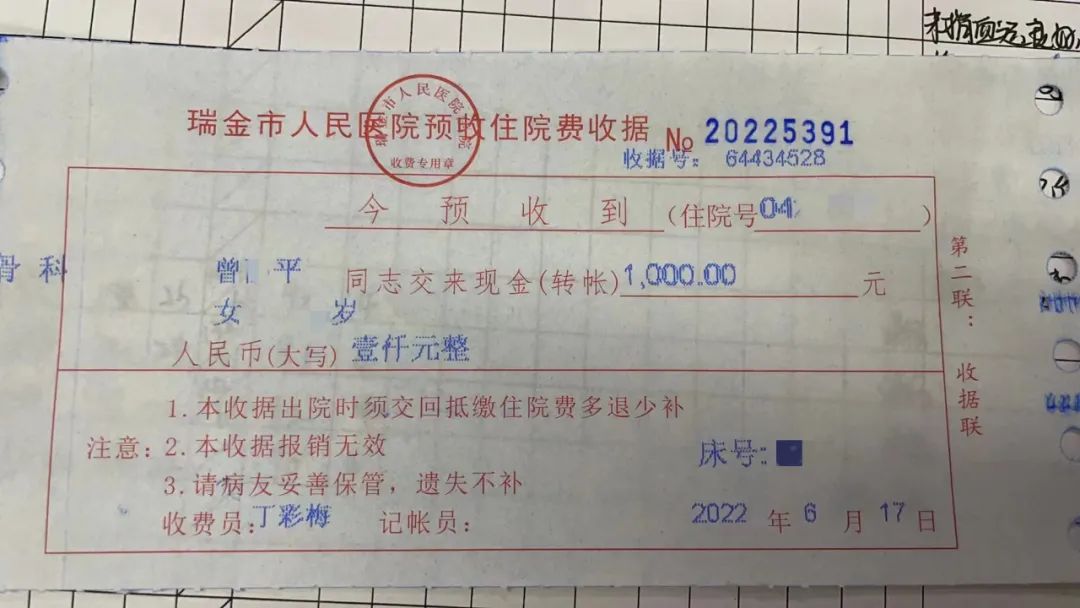 瑞金市人民医院预收住院费收据 № 20225391
收据号: 64434528
瑞金市人民医院
收费专用章
今预收到(住院号04
骨科 曾 平 同志交来现金(转帐)1,000.00 元
女 岁
人民币(大写)壹仟元整
注意:
1.本收据出院时须交回抵缴住院费多退少补
2.本收据报销无效
3.请病友妥善保管,遗失不补
床号:
收费员:丁彩梅 记帐员: 2022 年 6 月 17 日
第二联: 收据联